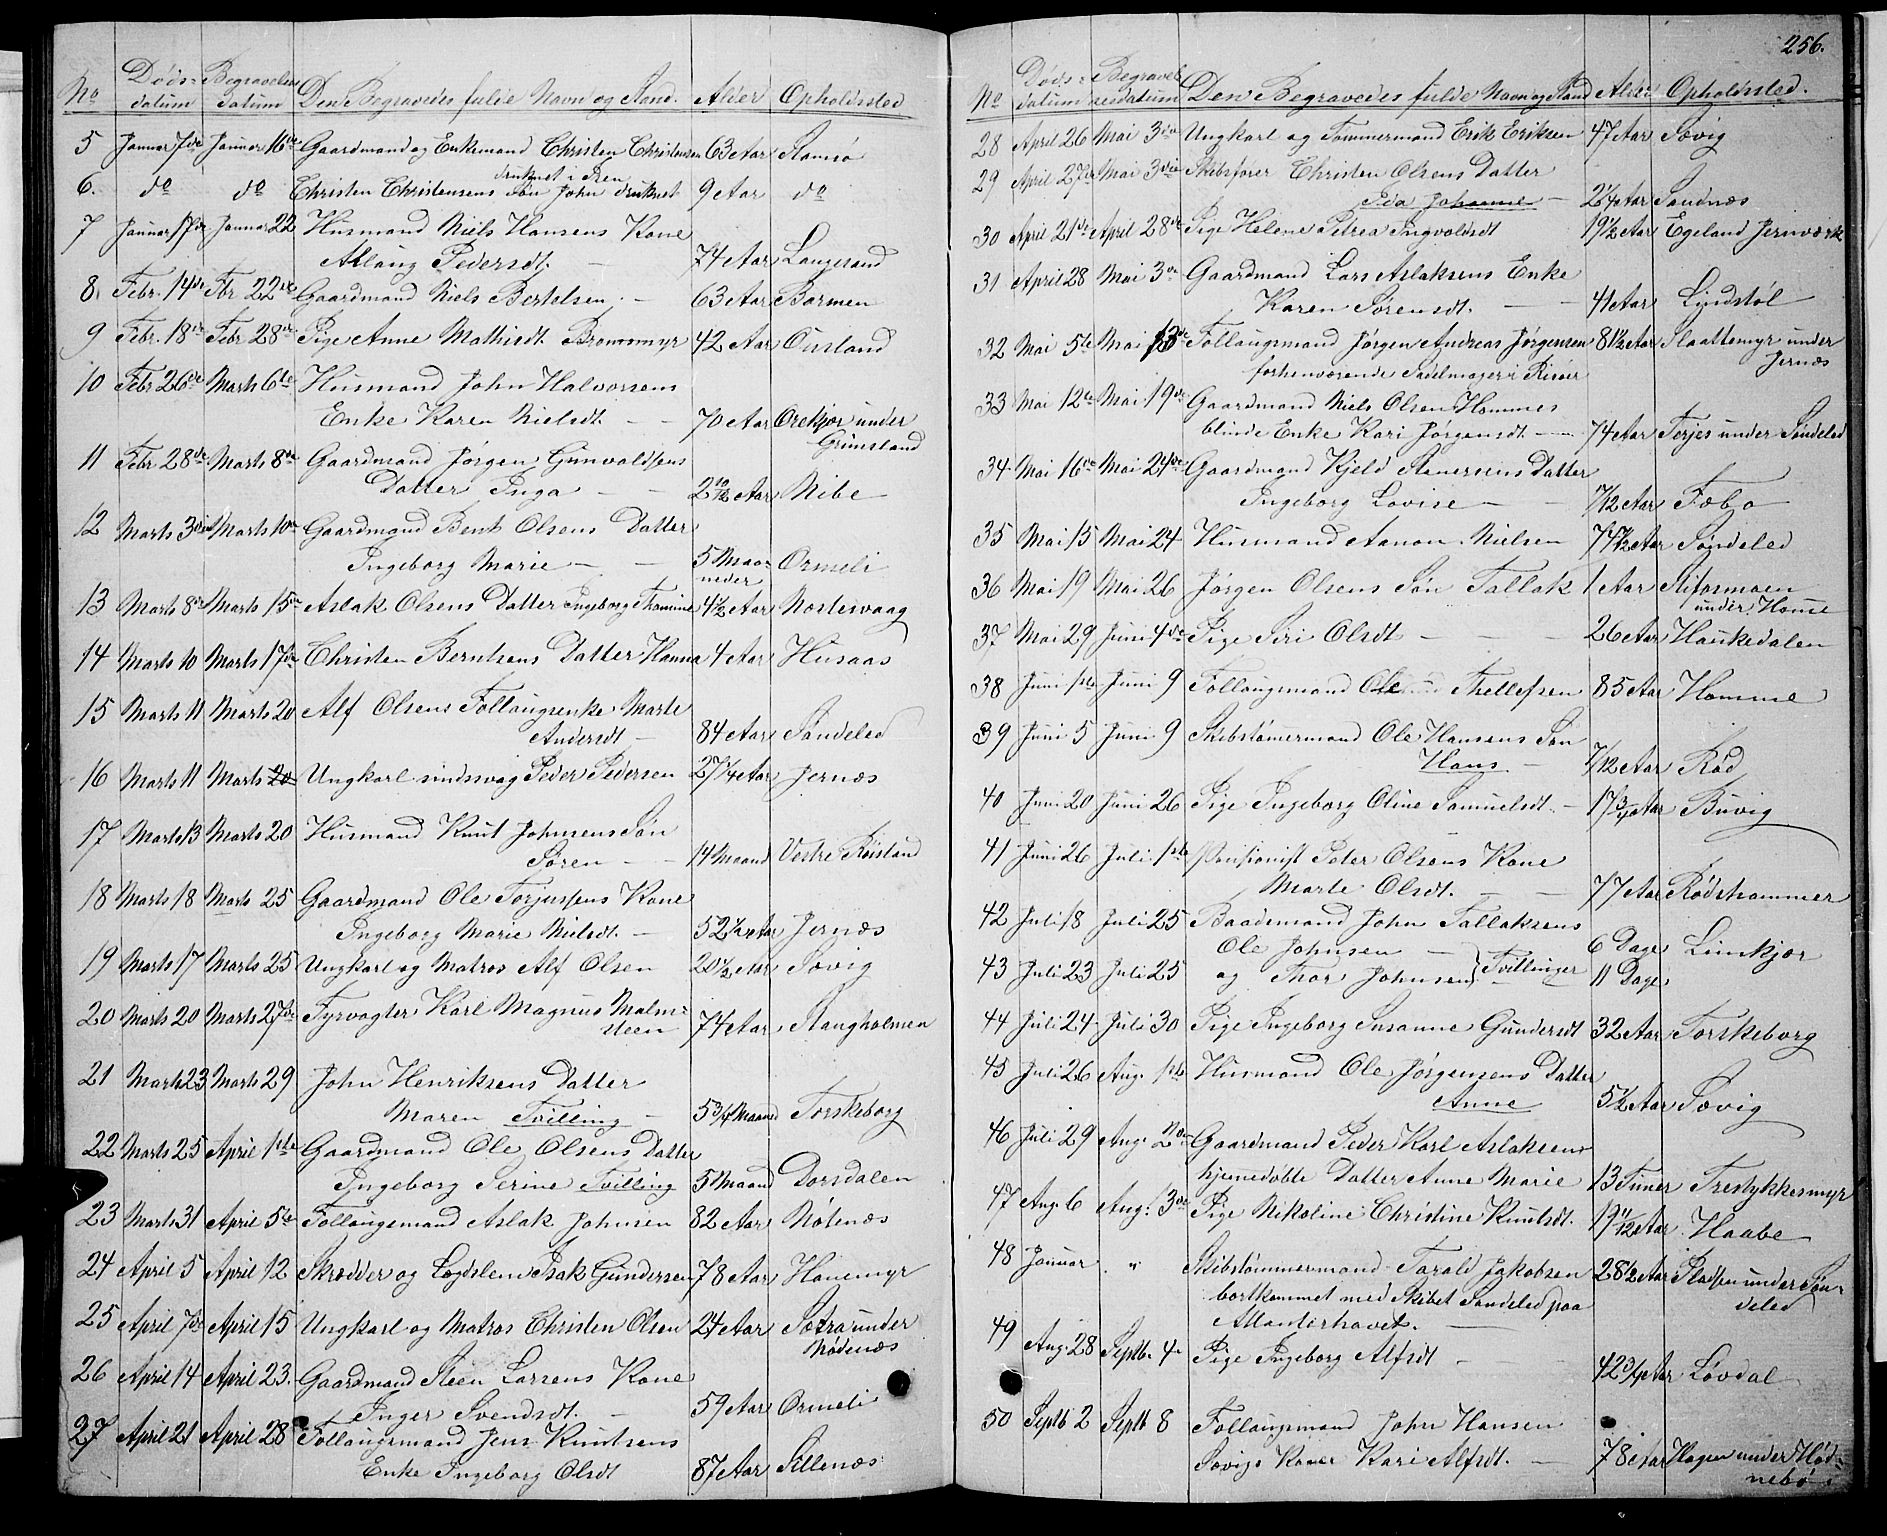 256.
No Døds-datum Begravelses datum Den Begravedes fulde Navn og Stand. Alder Opholdssted
5 Januar 7de Januar 16de Gaardmand og Enkemand Christen Christensen 63 Aar Stamsø
druknet i Søen
6. do do Christen Christensens Søn John druknet 9 Aar do
7 Januar 17de Januar 22 Husmand Niels Hansens Kone
Aslaug Pedersdt. 74 Aar Langesand
8. Febr. 14de Fbr 22de Gaardmand Niels Bertelsen. 63 Aar Barmen
9 Febr. 18de Febr 28de Pige Anne Mathisdt. Bromsmyr 42 Aar Ousland
10 Febr 26de Marts 6te Husmand John Halvorsens
Enke Karen Nielsdt. 70 Aar Orekjør under
Grimsland
11 Febr 28de Marts 8de Gaardmand Jørgen Gunvaldsens
Datter Inga 2 10/12 Aar Nibe
12 Marts 3die Marts 10de Gaardmand Bent Olsens Datter
Ingeborg Marie 5 Maa-
neder Ormeli
13 Marts 8de Marts 15de Aslak Olsens Datter Ingeborg Thomine 4 1/2 Aar Nostesvaag
14 Marts 10 Marts 17de Christen Berntsens Datter Hanna 4 Aar Husaas
15 Marts 11 Marts 20 Alf Olsens Føllaugsenke Marte
Andersdt 84 Aar Søndeled
16 Marts 11 Marts 20 Ungkarl sindssvag Peder Pedersen 27 1/4 Aar Jernæs
17 Marts 13 Marts 20 Husmand Knut Johnsens Søn
Søren 14 Maand Vestre Røisland
18 Marts 18 Marts 25 Gaardmand Ole Torjussens Kone
Ingeborg Marie Nielsdt. 52 1/2 Aar Jernæs
19 Marts 17 Marts 25 Ungkarl og Matros Alf Olsen 20 1/2 Aar Sovig
20 Marts 20 Marts 27de Fyrvogter Karl Magnus Malm-
steen 74 Aar Stangholmen
21 Marts 23 Marts 29 John Henriksens Datter
Maren Tvilling 5 3/4 Maand Torskeborg
22 Marts 25 April 1ste Gaardmand Ole Olsens Datter
Ingeborg Serine Tvilling 5 Maand Dorsdalen
23 Marts 31 April 5te Føllaugsmand Aslak Johnsen 82 Aar Nøtenæs
24 April 5 April 12 Skrædder og Lægdslem Isak Gundersen 78 Aar Hanemyr
25 April 7de April 15 Ungkarl og Matros Christen Olsen 24 Aar Sætra under
Mødenæs
26 April 14 April 23. Gaardmand Steen Larsens Kone
Inger Svendsdt. 59 Aar Ormeli
27 April 21 April 28 Føllaugsmand Jens Knutsens
Enke Ingeborg Olsdt 87 Aar Sillenæs
No Døds-datum Begravelsesdatum Den Begravedes fulde Navn og Stand Alder Opholdssted.
28 April 26 Mai 3die Ungkarl og Tømmermand Erik Eriksen 47 Aar Sovig
29 April 27de Mai 3die Skibsfører Christen Olsens Datter
Ida Johanne 2 1/4 Aar Sandnæs
30 April 21de April 28de Pige Helene Petrea Ingvoldsdt 19 1/2 Aar Egeland Jernværk
31 April 28 Mai 3die Gaardmand Lars Aslaksens Enke
Karen Sørensdt. 41 Aar Lindstøl
32 Mai 5te Mai 13de Føllaugsmand Jørgen Andreas Jørgensen 81 1/2 Aar Slaattemyr under
forhenværende Sadelmager i Risøer Jernæs
33 Mai 12te Mai 19de Gaardmand Niels Olsen Hommes
blinde Enke Kari Jørgensdt. 74 Aar Terjes under Søndeled
34 Mai 16de Mai 24de Gaardmand Kjeld Stenersens Datter
Ingeborg Lovise 7/12 Aar Fæbo
35 Mai 15 Mai 24 Husmand Aanon Nielsen 74 1/2 Aar Søndeled
36 Mai 19 Mai 26 Jørgen Olsens Søn Tallak 1 Aar Stifosmoen
under Homme
37 Mai 29 Juni 4de Pige Siri Olsdt 26 Aar Haukedalen
38 Juni 1ste Juni 9 Føllaugsmand Ole Thellefsen 85 Aar Homme
39 Juni 5 Juni 9 Skibstømermand Ole Hansens Søn
Hans 7/12 Aar Rød
40 Juni 20 Juni 26 Pige Ingeborg Oline Samuelsdt. 17 3/4 Aar Buvig
41 Juni 26 Juli 1ste Pensionist Peter Olsens Kone
Marte Olsdt. 77 Aar Rødshammer
42 Juli 18 Juli 25 Baadsmand John Tallaksens
Ole Johnsen 6 Dage Limkjær
43 Juli 23 Juli 25 og Thor Johnsen Tvillinger 11 Dage
44 Juli 24 Juli 30 Pige Ingeborg Susanne Gundersdt 32 Aar Torskeborg
45 Juli 26 Aug. 1ste Husmand Ole Jørgensens Datter
Anne 5 1/2 Aar Sovig
46 Juli 29 Aug. 2den Gaardmand Peder Karl Aslaksens
hjemmedøbte Datter Anne Marie 13 Timer Trestykkesmyr
47 Aug. 6 Aug. 13de Pige Nikoline Christine Knutsdt. 19 11/12 Aar Haabe
48 Januar " Skibstømmermand Tarald Jakobsen 28 1/2 Aar Pladsen under Søn-
bortkommet med Skibet Søndeled paa deled
Atlanterhavet.
49 Aug. 28 Septb. 4de Pige Ingeborg Alfsdt 42 3/4 Aar Løvdal
50 Septb 2 Septb 8 Føllaugsmand John Hansen
Sovigs Kone Kari Alfsdt. 78 Aar Hagen under Hød-
nebø